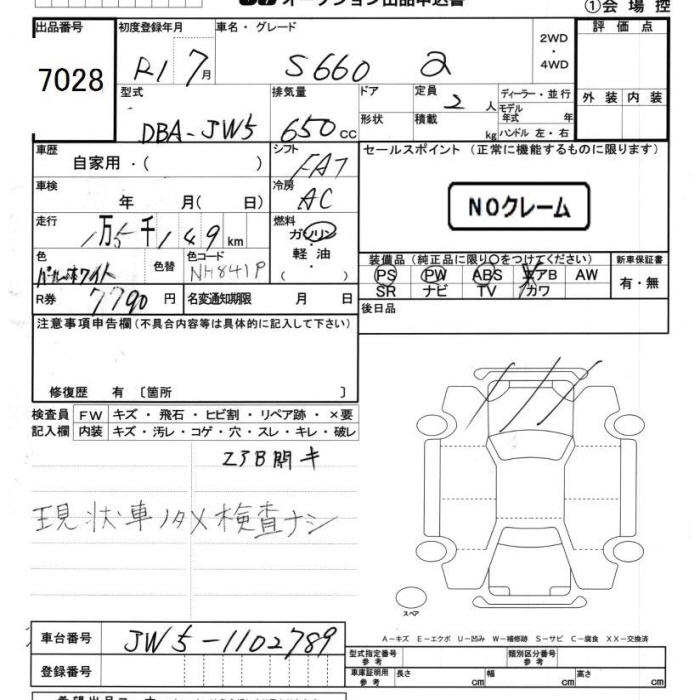 オークション出品申込書
①会場控
出品番号 初度登録年月 車名・グレード 2WD・4WD 評価点
7028 R1 7月 S660 α
型式 排気量 ドア 定員 2人 ディーラー・並行 外装 内装
DBA-JW5 650cc 形状 積載 kg モデル年式 年
ハンドル 左・右
車歴 シフト セールスポイント(正常に機能するものに限ります)
自家用・( ) FA7
車検 冷房
年 月(日) AC NOクレーム
走行 燃料
1万5千149km ガソリン
軽油・
( )
色 色替 色コード 装備品(純正品に限り○をつけてください) 新車保証書
パールホワイト NH841P PS PW ABS エアB AW 有・無
SR ナビ TV カワ
R券 7790円 名変通知期限 月 日 後日品
注意事項申告欄(不具合内容等は具体的に記入して下さい)
修復歴 有〔箇所 〕
検査員 FW キズ・飛石・ヒビ割・リペア跡・×要
記入欄 内装 キズ・汚レ・コゲ・穴・スレ・キレ・破レ
エアB開キ
現状車ノタメ検査ナシ
スペア
A-キズ E-エクボ U-凹み W-補修跡 S-サビ C-腐食 XX-交換済
車台番号 JW5-1102789
型式指定番号 参考 類別区分番号 参考
登録番号 車庫証明用 参考 長さ cm 幅 cm 高さ cm